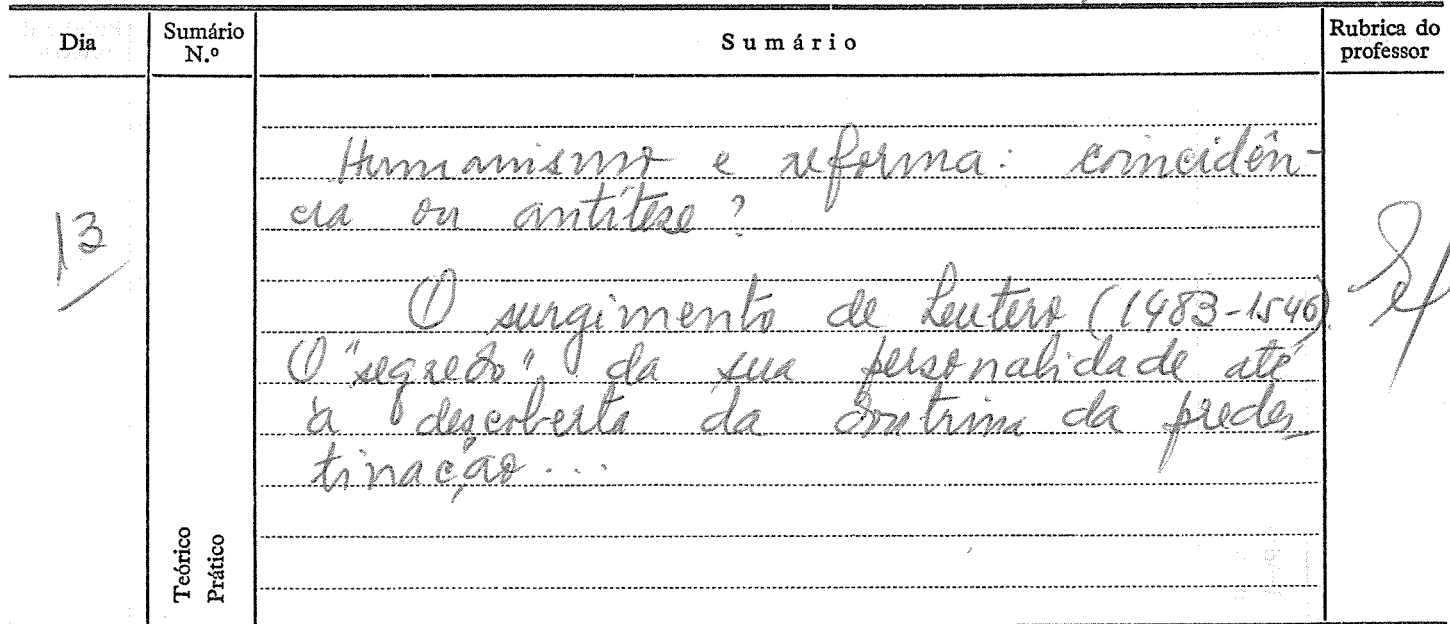 Dia
Sumário N.º
Sumário
Rubrica do professor
13
Humanismo e reforma: coincidên-
cia ou antítese?
O surgimento de Leutero (1483-1546).
O "segredo" da sua personalidade até
à descoberta da doutrina da predes_
tinação...
Teórico
Prático